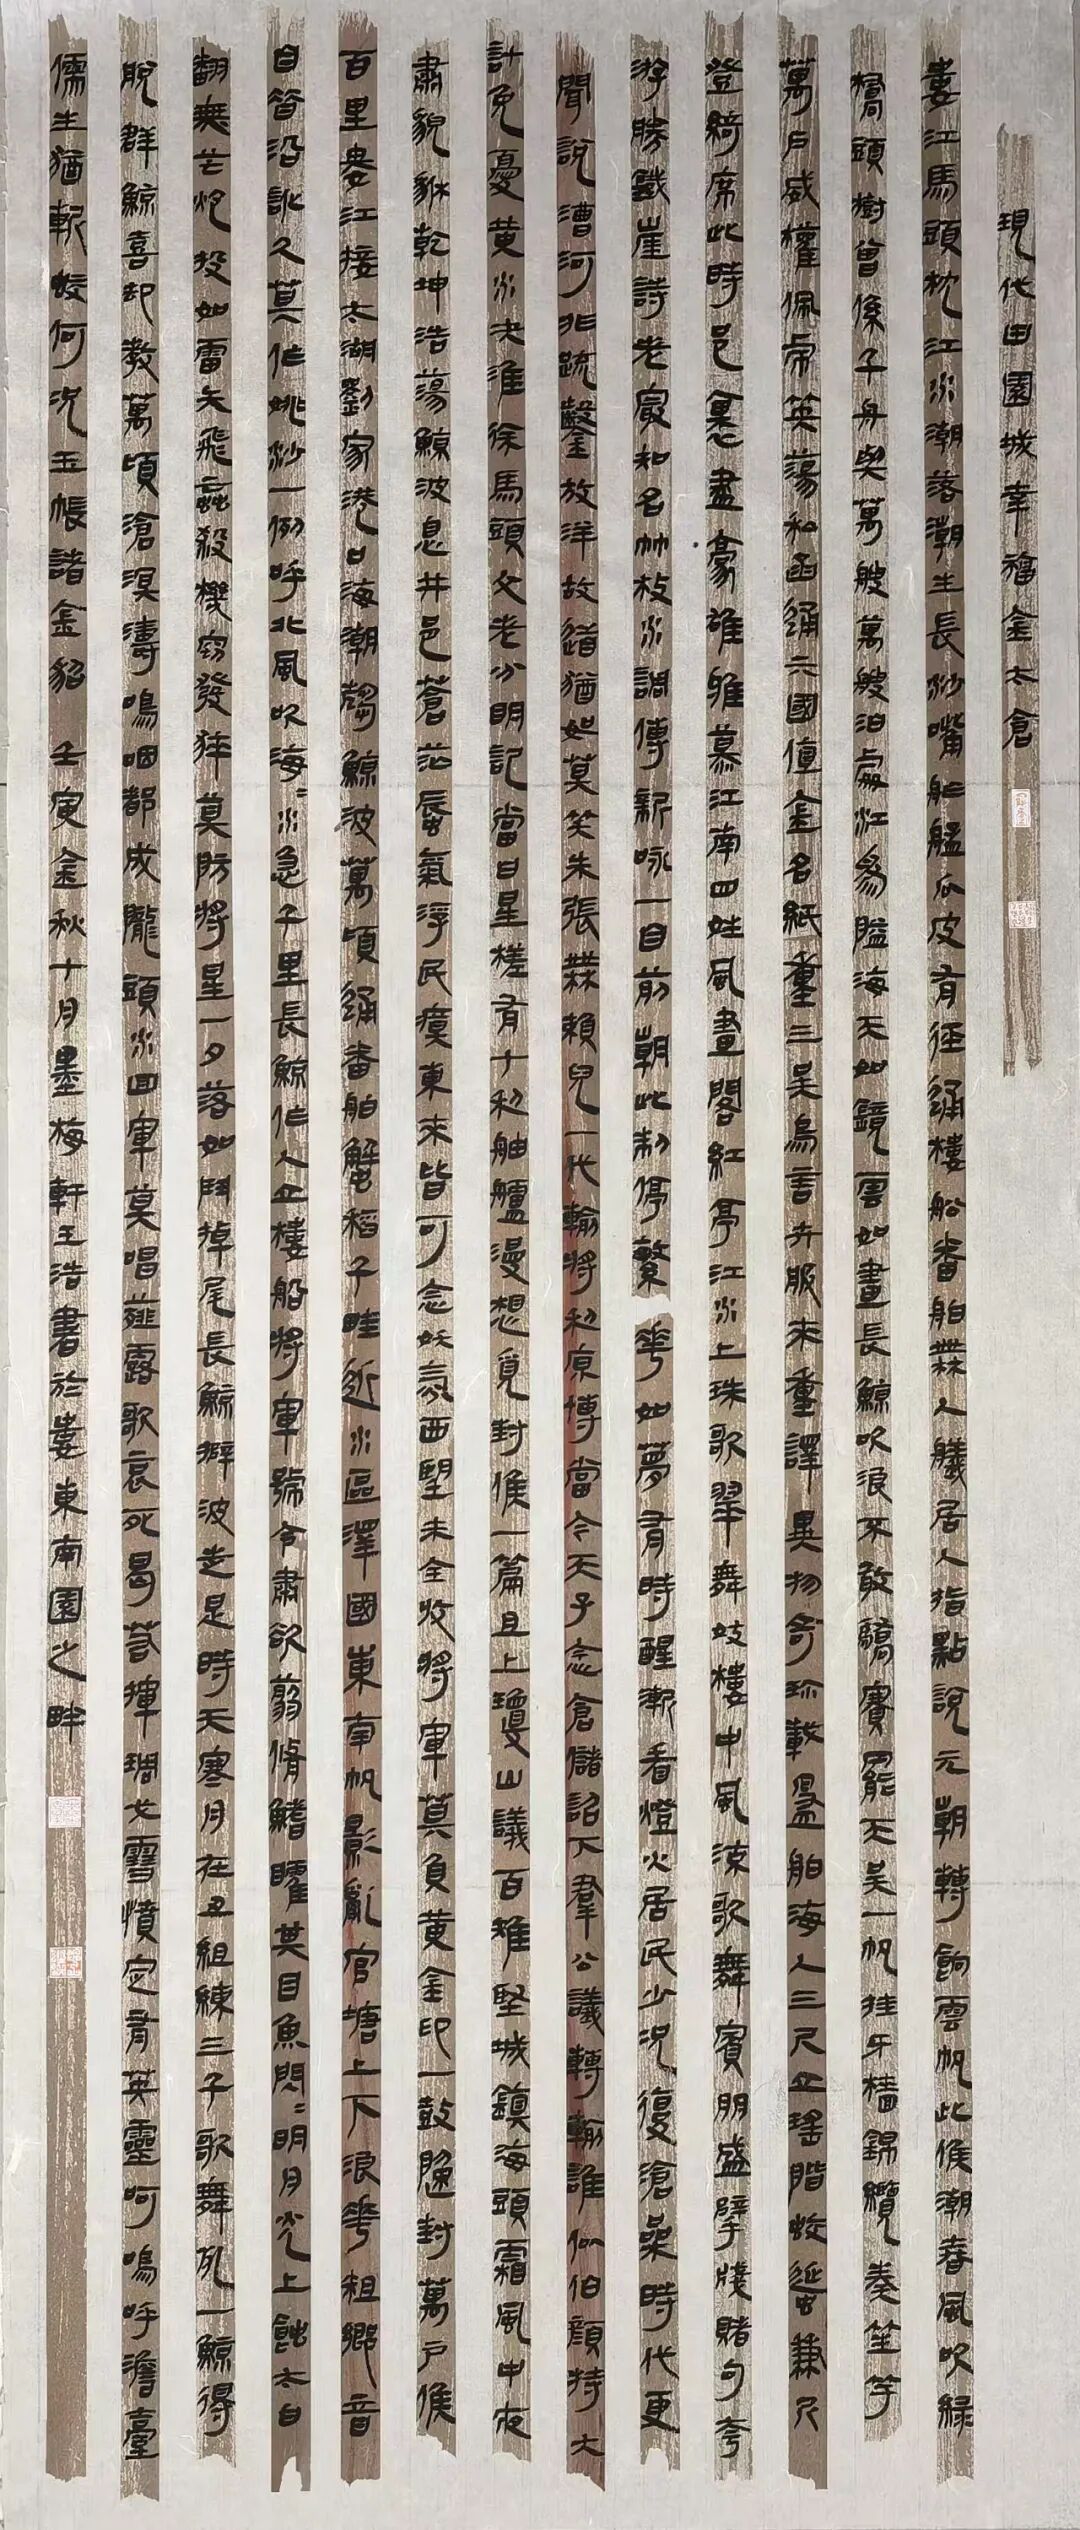 現代田園城幸福金太倉
婁江馬頭枕江水潮落潮生長沙嘴舴艋瓜皮有徑通樓船番舶無人艤居人指點說元朝轉餉雲帆此候潮春風吹綠
橋頭樹曾係千舟與萬艘萬艘泊處江為隘海天如鏡雲如畫長鯨吹浪不敢驕賽罷天吳一帆挂牙檣錦纜奏笙竽
萬戶威權佩虎英蕩和函通六國值金名紙重三吳鳥言卉服來重譯異物奇珍載舶海人三尺立瑤階蛟延出兼
登綺席此時邑里盡豪雄雅慕江南四姓風畫閣紅亭江水上珠歌翠舞妓樓中風流歌舞賓朋盛擘牋賭句夸
游勝鐵崖詩老最知名竹枝水調傳新咏一自前朝此制停繁華如夢有時醒漸看燈火居民少況復滄桑時代更
聞說漕河非疏鑿放洋故緒猶如莫笑朱張無賴兒一代輸將利原博當今天子念倉儲詔下羣公議轉輸誰似伯顏持大
計免憂黃水決淮徐馬頭父老分明記當日星槎有十利舳艫漫想覓封侯一篇且上瓊山議百雉堅城鎮海頭霜風中夜
肅貌貅乾坤浩蕩鯨波息井邑蒼茫蜃氣浮民瘼東來皆可念妖氛西望未全收將軍莫負黃金印一鼓隨封萬戶侯
百里婁江接太湖劉家港口海潮驕鯨波萬頃通番舶蟹稻千畦近水區澤國東南帆影亂官塘上下浪華粗鄉音
自昔沿訛久莫作姚沙一例呼北風吹海海水急千里長鯨作人立樓船將軍號令肅欲剪脩鰭矐其目魚閃閃明月光上蝕太白
翻無芒炮投如雷矢飛蝱殺機窃發猝莫防將星一夕落如斗掉尾長鯨擗波走是時天寒月在丑組練三千歌舞死一鯨得
脫群鯨喜却教萬頃滄溟濤鳴咽都成隴頭水回軍莫唱薤露歌哀死曷若揮琱戈雪憤定有英靈呵嗚呼澹臺
儒生猶斬蛟何況玉帳諸金貂 壬寅金秋十月墨梅軒王浩書於婁東南園之畔